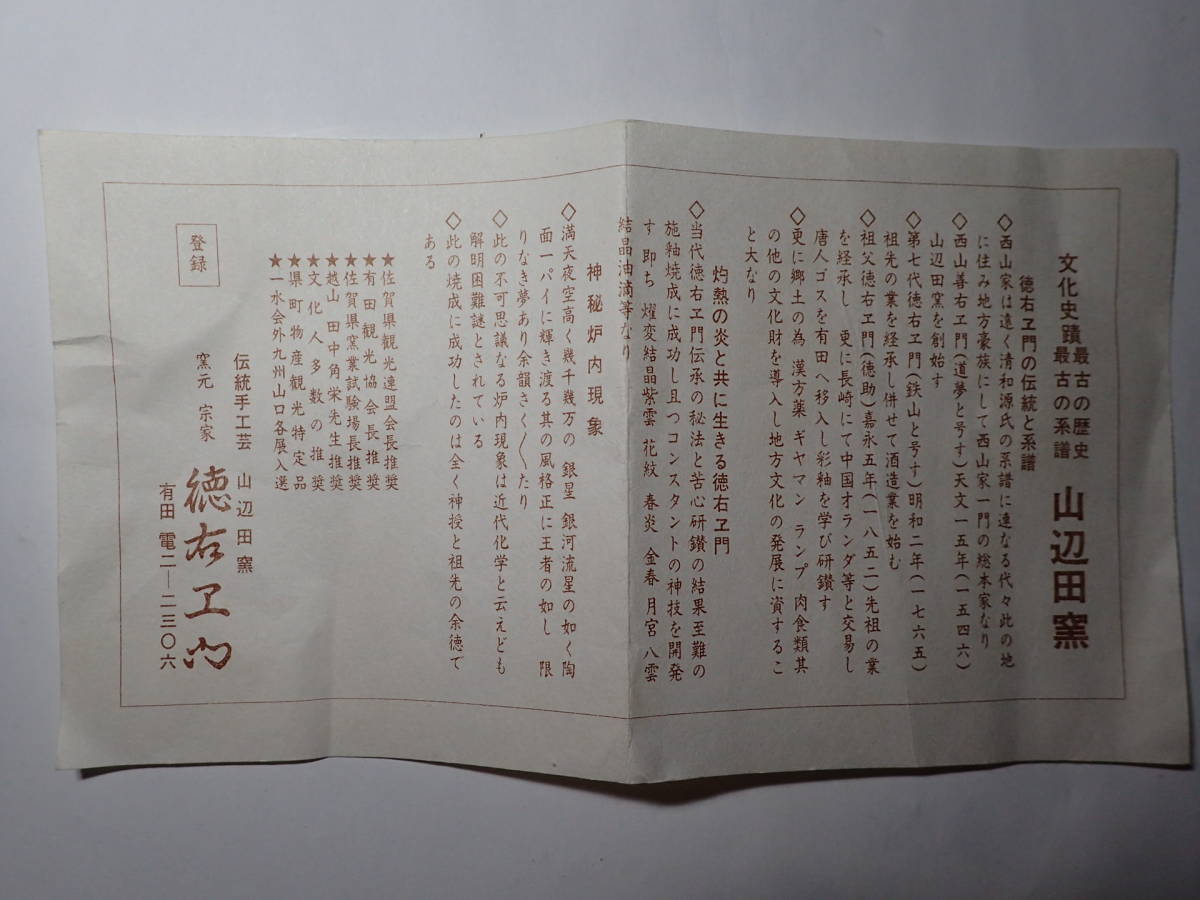 文化史蹟 最古の歴史
最古の系譜 山辺田窯
徳右ヱ門の伝統と系譜
◇西山家は遠く清和源氏の系譜に連なる代々此の地
に住み地方豪族にして西山家一門の総本家なり
◇西山善右ヱ門(道夢と号す)天文一五年(一五四六)
山辺田窯を創始す
◇第七代徳右ヱ門(鉄山と号す)明和二年(一七六五)
祖先の業を経承し併せて酒造業を始む
◇祖父徳右ヱ門(徳助)嘉永五年(一八五二)先祖の業
を経承し 更に長崎にて中国オランダ等と交易し
唐人ゴスを有田へ移入し彩釉を学び研鑚す
◇更に郷土の為 漢方薬 ギヤマン ランプ 肉食類其
の他の文化財を導入し地方文化の発展に資するこ
と大なり
灼熱の炎と共に生きる徳右ヱ門
◇当代徳右ヱ門伝承の秘法と苦心研鑚の結果至難の
施釉焼成に成功し且つコンスタントの神技を開発
す 即ち 燿変結晶紫雲 花紋 春炎 金春 月宮 八雲
結晶油滴等なり
神秘炉内現象
◇満天夜空高く幾千幾万の 銀星 銀河流星の如く陶
面一パイに輝き渡る其の風格正に王者の如し 限
りなき夢あり余韻さく〱たり
◇此の不可思議なる炉内現象は近代化学と云えども
解明困難謎とされている
◇此の焼成に成功したのは全く神授と祖先の余徳で
ある
★佐賀県観光連盟会長推奨
★有田観光協会長推奨
★佐賀県窯業試験場長推奨
★越山田中角栄先生推奨
★文化人多数の推奨
★県町物産観光特定品
★一水会外九州山口各展入選
伝統手工芸 山辺田窯
窯元 宗家 徳右ヱ門
有田 電二―二三〇六
登録